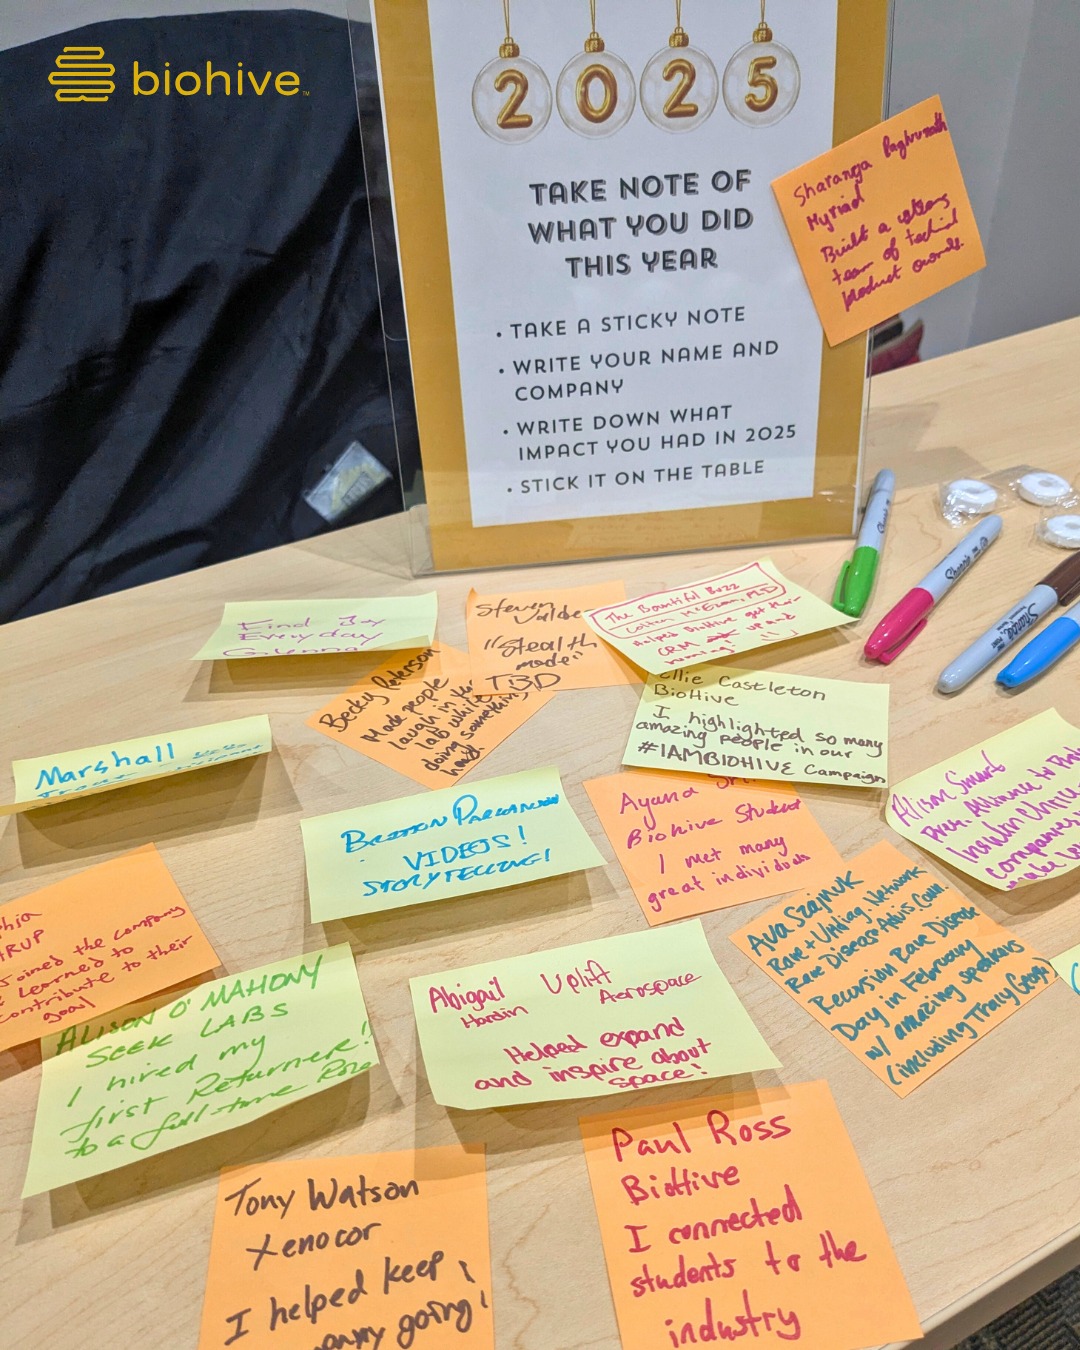 biohive
2025
TAKE NOTE OF
WHAT YOU DID
THIS YEAR
• TAKE A STICKY NOTE
• WRITE YOUR NAME AND
COMPANY
• WRITE DOWN WHAT
IMPACT YOU HAD IN 2025
• STICK IT ON THE TABLE
Sharanga Raghunath
Myriad
Built a
team of
product owners.
Sharpie
Sharpie
Sharpie
Find Joy
Everyday
Glenna
Steven
"Stealth
mode"
TBD
The Bountiful Buzz
Colton McEwan, MLD
Helped BioHive get their
CRM up and
running!
Becky Peterson
Made people
laugh in the
lab while
doing something
hard
Ellie Castleton
BioHive
I highlighted so many
amazing people in our
#IAMBIOHIVE Campaign
Marshall
VIDEOS!
STORYTELLING!
Ayana
Biohive Student
I met many
great individuals
Alison Smart
Insulin Choice
companies
make
Joined the company
Learned to
contribute to their
goal
ALISON O'MAHONY
SEEK LABS
I hired my
first Returner!
to a full-time Role
Abigail Uplift
Hardin Aerospace
Helped expand
and inspire about
space!
AVA SZAJNUK
Rare + Undiag. Network
Rare Disease Advis. Comm.
Recursion Rare Disease
Day in February
w/ amazing speakers
(including Thaly George)
Tony Watson
Xenocor
I helped keep
going!
Paul Ross
BioHive
I connected
students to the
industry